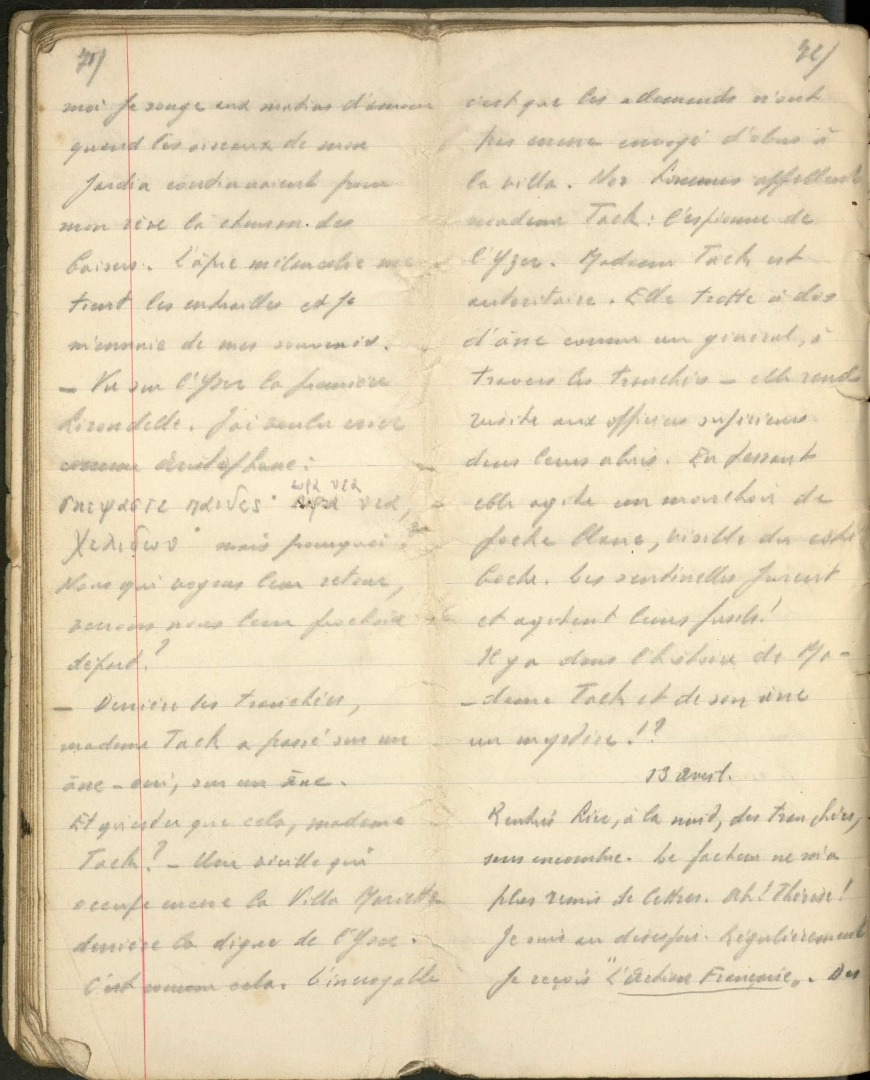 71/
moi je songe aux matins d'amour
quand les oiseaux de mon
jardin continuaient pour
mon rêve la chanson des
baisers. L'âpre mélancolie me
tient les entrailles et je
m'ennuie de mes souvenirs.
— Vu sur l'Yser la première
hirondelle. J'ai voulu crier
comme Aristophane:
ωρα νεα
σκεψασθε παιδες· νεα,
χελιδων· mais pourquoi?
Nous qui voyons leur retour,
verrons nous leur prochain
départ?
— Derrière les tranchées,
madame Tack a passé sur un
âne — oui, sur un âne.
Et qu'est-ce que cela, madame
Tack? — Une vieille qui
occupe encore la Villa Marietta
derrière la digue de l'Yser.
C'est comme cela. L'incroyable
72/
c'est que les allemands n'ont
pas encore envoyé d'obus à
la villa. Nos hommes appellent
madame Tack: l'espionne de
l'Yser. Madame Tack est
autoritaire. Elle trotte à dos
d'âne comme un général, à
travers les tranchées — elle rend
visite aux officiers supérieurs
dans leurs abris. En passant
elle agite un mouchoir de
poche blanc, visible du côté
boche. Les sentinelles jurent
et agitent leurs fusils!
Il y a dans l'histoire de Ma-
-dame Tack et de son âne
un mystère!?
13 avril.
Rentrés hier, à la nuit, des tranchées,
sans encombre. Le facteur ne m'a
plus remis de lettres. Ah! Thérèse!
Je suis au désespoir. Régulièrement
je reçois "L'Action Française". Des